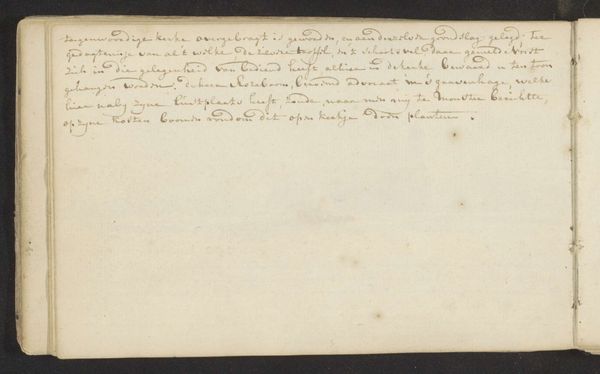 tegenwoordige kerke overgebragt is geworden, en aan denzelven grondslag gelegd. Ter
gedagtenisse van al't welke de zilvere troffel, en 't schortsvel daar gemelde Vorst
zich in die gelegenheid van bediend heeft, alhier in de kerke bewaard en ten toon
gehangen worden. de heer Roseboom, beroemd advocaat in 's gravenhage, welke
hier naby zyne lustplaats heeft, zoude, naar men my te Monster berichtte,
op zyne kosten boomen rondom dit open kerkje doen planten.